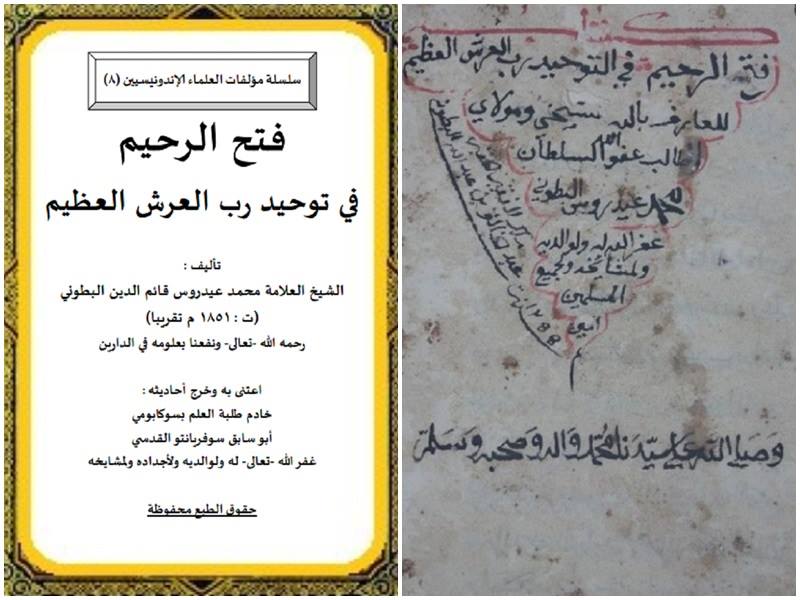 سلسلة مؤلفات العلماء الإندونيسيين (٨)
فتح الرحيم
في توحيد رب العرش العظيم
تأليف :
الشيخ العلامة محمد عيدروس قائم الدين البطوني
(ت : ١٨٥١ م تقريبا)
رحمه الله -تعالى- ونفعنا بعلومه في الدارين
اعتنى به وخرج أحاديثه :
خادم طلبة العلم بسوكابومي
أبو سابق سوفريانتو القدسي
غفر الله -تعالى- له ولوالديه ولأجداده ولمشايخه
حقوق الطبع محفوظة
فتح الرحيم في التوحيد رب العرش العظيم
للعارف بالله شيخي ومولاي
طالب عفو الله السلطان
محمد عيدروس البطوني
غفر الله له ولوالديه
ولمشايخه ولجميع
المسلمين
امين
وصلى الله على سيدنا محمد واله وصحبه وسلم